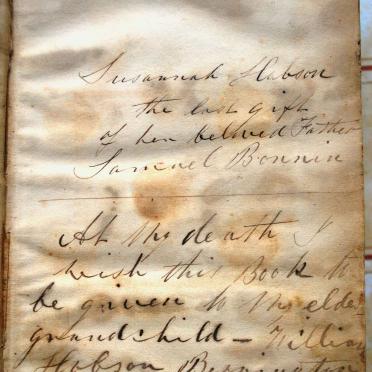 Susannah Hobson
the last gift
of her beloved Father
Samuel Bonnin
At my death I
wish this Book to
be given to my elde
grandchild – Willia
Hobson Bennington